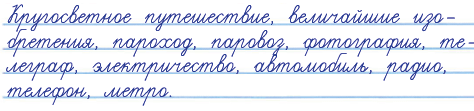 Кругосветное путешествие, величайшие изо-
бретения, пароход, паровоз, фотография, те-
леграф, электричество, автомобиль, радио,
телефон, метро.